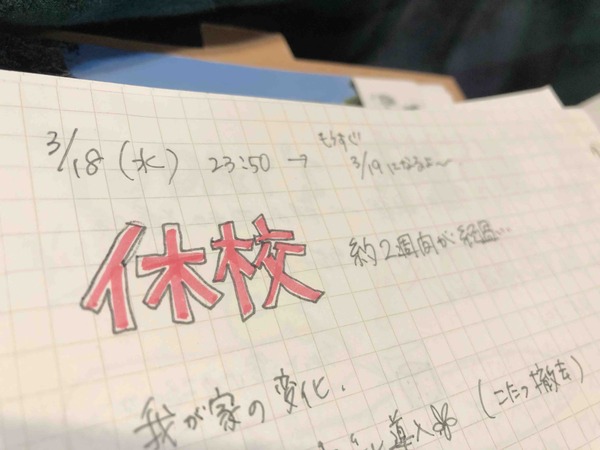 3/18(水) 23:50 → もうすぐ 3/19になるよ〜
休校 約2週間が経過…
我が家の変化.
導入 (こたつ撤去)